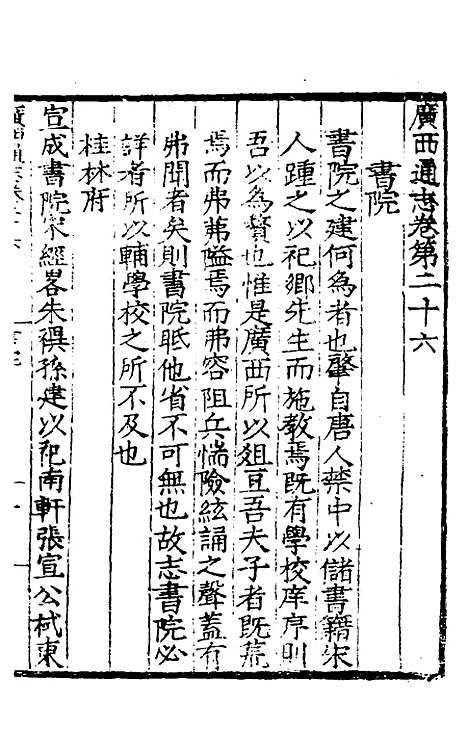 廣西通志卷第二十六
書院
書院之建何為者也肇自唐人禁中以儲書籍宋
人踵之以祀鄉先生而施教焉既有學校庠序則
吾以為贅也惟是廣西所以俎豆吾夫子者既荒
焉而弗茀隘焉而弗容阻兵惴險絃誦之聲蓋有
弗聞者矣則書院眂他省不可無也故志書院必
詳者所以輔學校之所不及也
桂林府
宣成書院宋經畧朱禩孫建以祀南軒張宣公栻東
廣西通志卷二十六